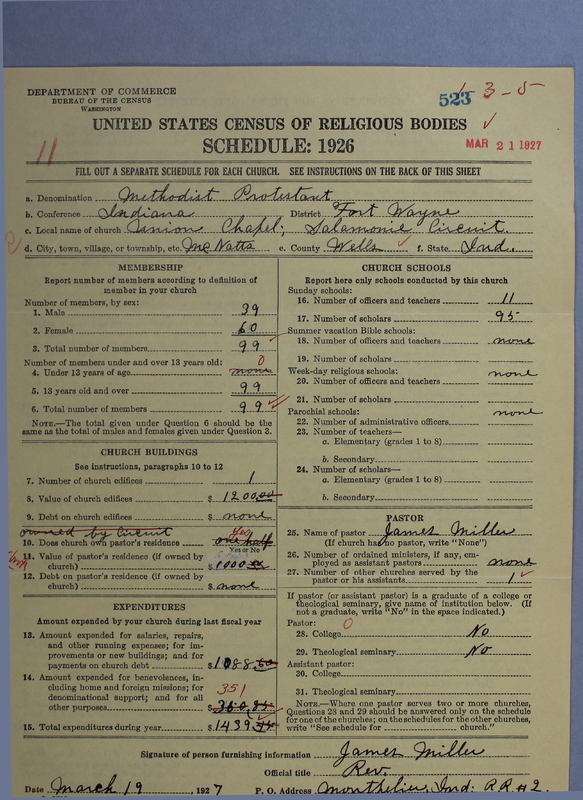 DEPARTMENT OF COMMERCE
BUREAU OF THE CENSUS
WASHINGTON
523
1-3-5
UNITED STATES CENSUS OF RELIGIOUS BODIES
SCHEDULE: 1926
MAR 21 1927
11
FILL OUT A SEPARATE SCHEDULE FOR EACH CHURCH. SEE INSTRUCTIONS ON THE BACK OF THIS SHEET
a. Denomination Methodist Protestant
b. Conference Indiana District Fort Wayne
c. Local name of church Union Chapel; Salamonie Circuit.
d. City, town, village, or township, etc. McNatts e. County Wells f. State Ind.
MEMBERSHIP
Report number of members according to definition of member in your church
Number of members, by sex:
1. Male 39
2. Female 60
3. Total number of members 99
Number of members under and over 13 years old: 0
4. Under 13 years of age none
5. 13 years old and over 99
6. Total number of members 99
NOTE.—The total given under Question 6 should be the same as the total of males and females given under Question 3.
CHURCH BUILDINGS
See instructions, paragraphs 10 to 12
7. Number of church edifices 1
8. Value of church edifices $ 1200.00
9. Debt on church edifices $ none
owned by Circuit Yes
10. Does church own pastor's residence one half
Yes or No
11. Value of pastor's residence (if owned by church) $ 1000
12. Debt on pastor's residence (if owned by church) $ none
EXPENDITURES
Amount expended by your church during last fiscal year
13. Amount expended for salaries, repairs, and other running expenses; for improvements or new buildings; and for payments on church debt $ 1088
14. Amount expended for benevolences, including home and foreign missions; for denominational support; and for all other purposes 351
15. Total expenditures during year $ 1439
CHURCH SCHOOLS
Report here only schools conducted by this church
Sunday schools:
16. Number of officers and teachers 11
17. Number of scholars 95
Summer vacation Bible schools:
18. Number of officers and teachers none
19. Number of scholars
Week-day religious schools: none
20. Number of officers and teachers
21. Number of scholars
Parochial schools: none
22. Number of administrative officers
23. Number of teachers—
a. Elementary (grades 1 to 8)
b. Secondary
24. Number of scholars—
a. Elementary (grades 1 to 8)
b. Secondary
PASTOR
25. Name of pastor James Miller
(If church has no pastor, write "None")
26. Number of ordained ministers, if any, employed as assistant pastors none
27. Number of other churches served by the pastor or his assistants 1
If pastor (or assistant pastor) is a graduate of a college or theological seminary, give name of institution below. (If not a graduate, write "No" in the space indicated.)
Pastor: 0
28. College No
29. Theological seminary No
Assistant pastor:
30. College
31. Theological seminary
NOTE.—Where one pastor serves two or more churches, Questions 28 and 29 should be answered only on the schedule for one of the churches; on the schedules for the other churches, write "See schedule for church."
Signature of person furnishing information James Miller
Official title Rev.
Date March 19 1927 P. O. Address Montpelier, Ind. R R #2.